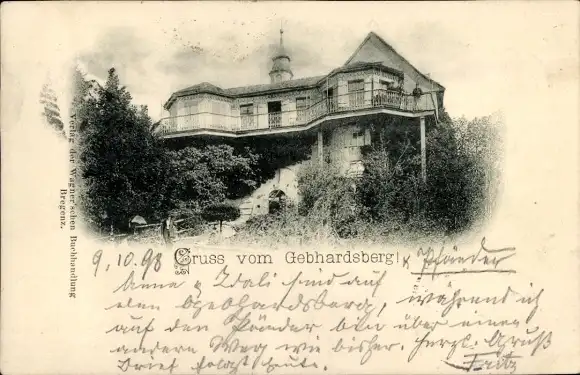 Verlag der Wagner'schen Buchhandlung
Bregenz.
Gruss vom Gebhardsberg!
x Pfänder
9.10.98
Anna & Idali sind auf
dem Gebhardsberg, während ich
auf den Pfänder bin über einen
andern Weg wie bisher. Herzl. Gruß
Brief folgt heute. Fritz